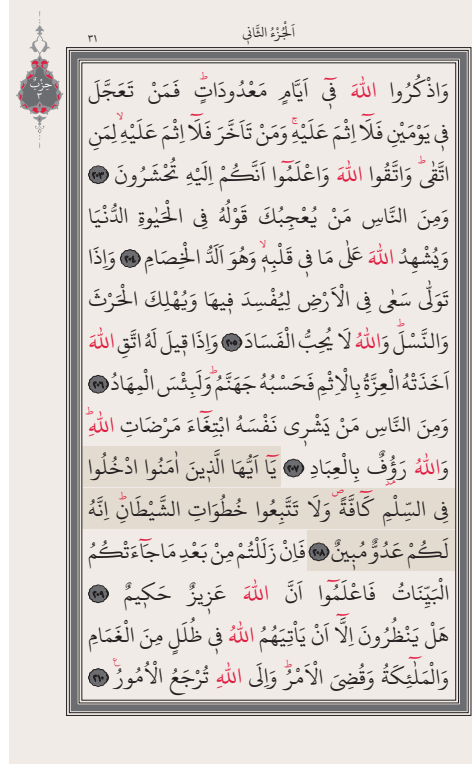 اَلْجُزْءُ الثَّانٖي
٣١
حزب
٣
وَاذْكُرُوا اللّٰهَ فٖٓي اَيَّامٍ مَعْدُودَاتٍؕ فَمَنْ تَعَجَّلَ
فٖي يَوْمَيْنِ فَلَٓا اِثْمَ عَلَيْهِۚ وَمَنْ تَاَخَّرَ فَلَٓا اِثْمَ عَلَيْهِۙ لِمَنِ
اتَّقٰىؕ وَاتَّقُوا اللّٰهَ وَاعْلَمُٓوا اَنَّكُمْ اِلَيْهِ تُحْشَرُونَ ﴿٢٠٣﴾
وَمِنَ النَّاسِ مَنْ يُعْجِبُكَ قَوْلُهُ فِي الْحَيٰوةِ الدُّنْيَا
وَيُشْهِدُ اللّٰهَ عَلٰى مَا فٖي قَلْبِهٖۙ وَهُوَ اَلَدُّ الْخِصَامِ ﴿٢٠٤﴾ وَاِذَا
تَوَلّٰى سَعٰى فِي الْاَرْضِ لِيُفْسِدَ فٖيهَا وَيُهْلِكَ الْحَرْثَ
وَالنَّسْلَؕ وَاللّٰهُ لَا يُحِبُّ الْفَسَادَ ﴿٢٠٥﴾ وَاِذَا قٖيلَ لَهُ اتَّقِ اللّٰهَ
اَخَذَتْهُ الْعِزَّةُ بِالْاِثْمِ فَحَسْبُهُ جَهَنَّمُؕ وَلَبِئْسَ الْمِهَادُ ﴿٢٠٦﴾
وَمِنَ النَّاسِ مَنْ يَشْرٖي نَفْسَهُ ابْتِغَٓاءَ مَرْضَاتِ اللّٰهِؕ
وَاللّٰهُ رَؤُ۫فٌ بِالْعِبَادِ ﴿٢٠٧﴾ يَٓا اَيُّهَا الَّذٖينَ اٰمَنُوا ادْخُلُوا
فِي السِّلْمِ كَٓافَّةًۖ وَلَا تَتَّبِعُوا خُطُوَاتِ الشَّيْطَانِؕ اِنَّهُ
لَكُمْ عَدُوٌّ مُبٖينٌ ﴿٢٠٨﴾ فَاِنْ زَلَلْتُمْ مِنْ بَعْدِ مَا جَٓاءَتْكُمُ
الْبَيِّنَاتُ فَاعْلَمُٓوا اَنَّ اللّٰهَ عَزٖيزٌ حَكٖيمٌ ﴿٢٠٩﴾
هَلْ يَنْظُرُونَ اِلَّٓا اَنْ يَأْتِيَهُمُ اللّٰهُ فٖي ظُلَلٍ مِنَ الْغَمَامِ
وَالْمَلٰٓئِكَةُ وَقُضِيَ الْاَمْرُؕ وَاِلَى اللّٰهِ تُرْجَعُ الْاُمُورُ۟ ﴿٢١٠﴾